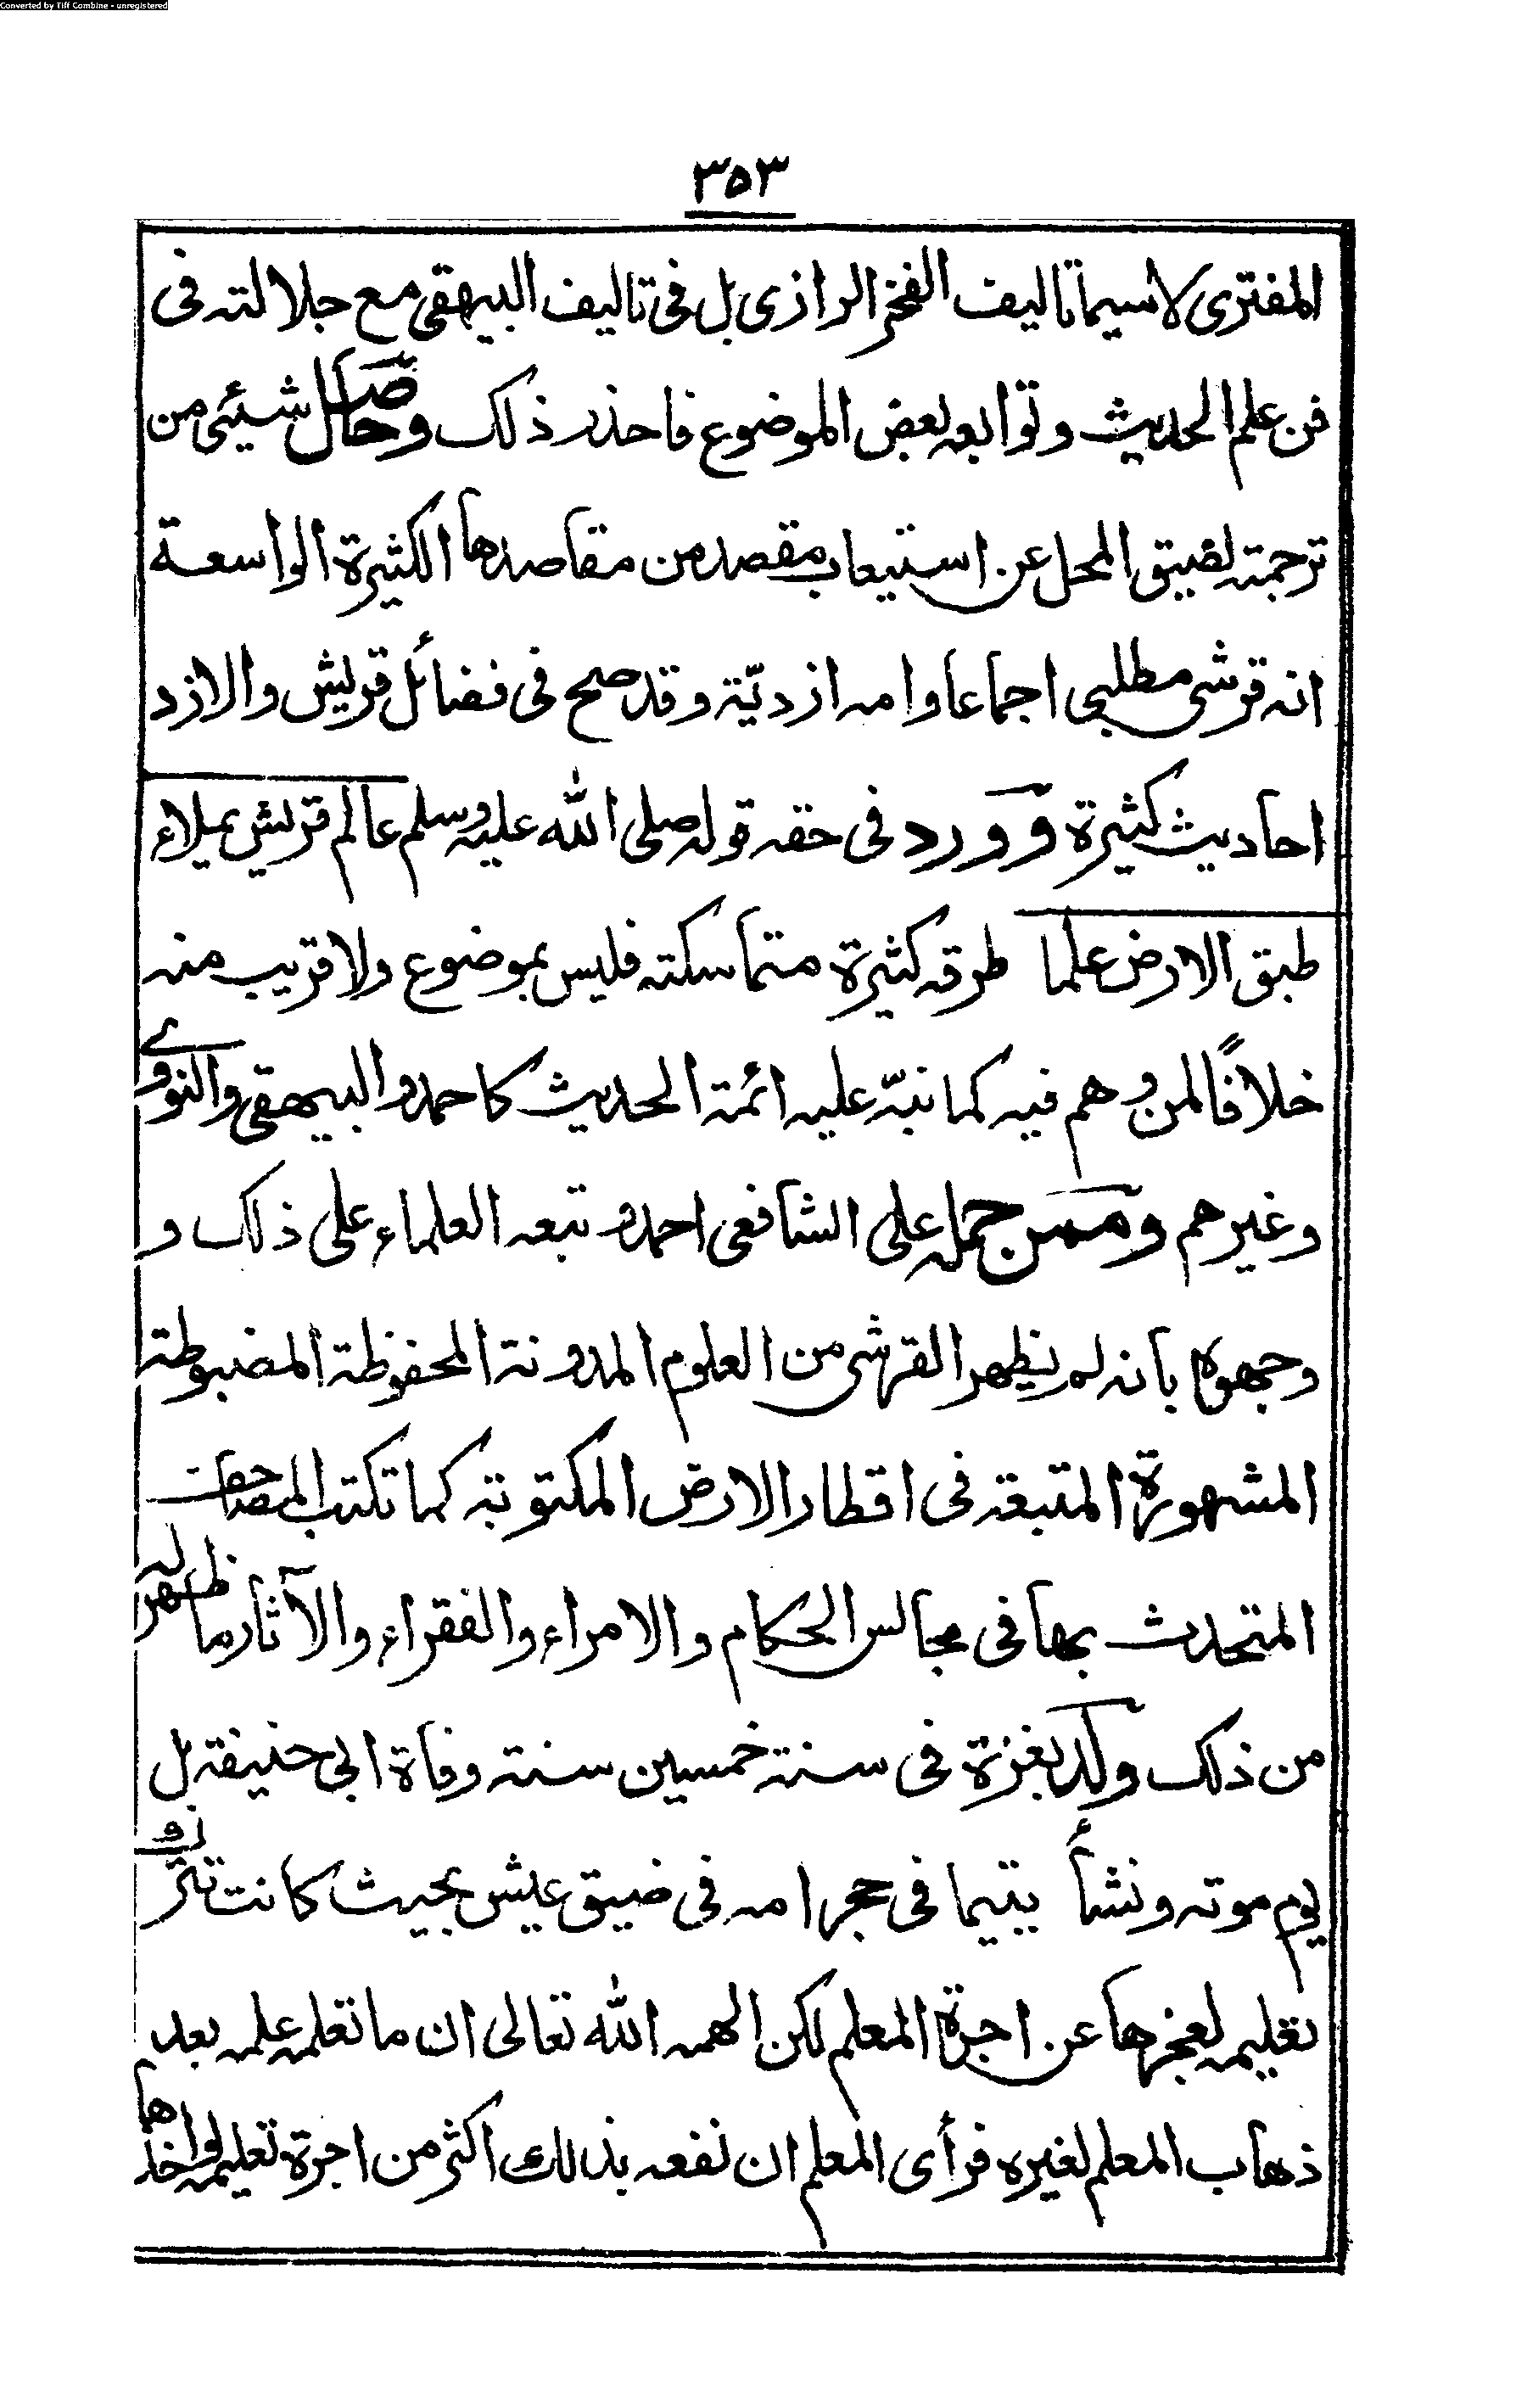 Converted by Tiff Combine - unregistered
٣٥٣
المفترى لاسيما تاليف الفخر الرازى بل فى تاليف البيهقى مع جلالته فى
فن علم الحديث وتوابعه بعض الموضوع فاحذر ذلك وحاصل شيئى من
ترجمته لضيق المحل عن استيعاب مقصد من مقاصدها الكثيرة الواسعة
انه قرشى مطلبى اجماعا وامه ازديّة وقد صح فى فضائل قريش والازد
احاديث كثيرة وورد فى حقه قوله صلى الله عليه وسلم عالم قريش يملاء
طبق الارض علما طرقه كثيرة متماسكته فليس بموضوع ولا قريب منه
خلافًا لمن وهم فيه كما نبّه عليه ائمة الحديث كاحمد والبيهقى والنووے
وغيرهم وممن حمله على الشافعى احمد وتبعه العلماء على ذلك و
وجهوه بأنه لم يظهر القرشى من العلوم المدونة المحفوظة المضبوطة
المشهورة المتبعة فى اقطار الارض المكتوبته كما تكتب المصاحف
المتحدث بها فى مجالس الحكام والامراء والفقراء والآثار ما ظهر له
من ذلك ولد بغزة فى سنة خمسين سنة وفاة ابى حنيفة بل
يوم موته ونشأ يتيما فى حجر امه فى ضيق عيش بحيث كانت
تعليمه لعجزها عن اجرة المعلم لكن الهمه الله تعالى ان ما تعلمه علمه بعد
ذهاب المعلم لغيره فرأى المعلم ان نفعه بذلك اكثر من اجرة تعليمه لو اخذها